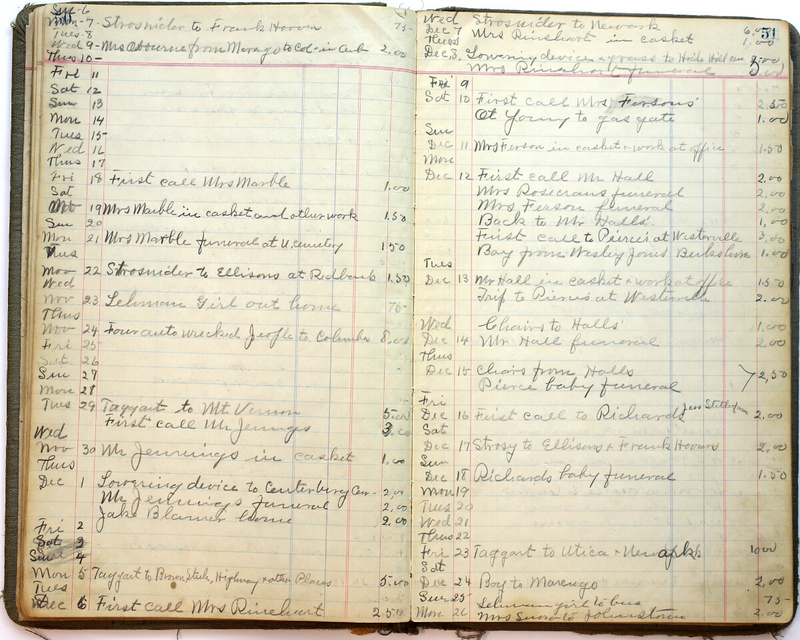 Sun-6
Mon-7- Strosnider to Frank Hoover 75-
Tues-8
Wed 9- Mrs Osbourne from Marengo to Col- in Amb 2.00
Thus 10-
Fri 11
Sat 12
Sun 13
Mon 14
Tues 15-
Wed 16
Thus 17
Fri 18 First call Mrs Marble 1.00
Sat
19 Mrs Marble in casket and other work 1.50
Sun 20
Mon 21 Mrs Marble funeral at U. cemetery 1 50
Tues
Nov 22 Strosnider to Ellisons at Redbank 1.50
Wed
Nov 23 Lehman Girl out home 75-
Thus
Nov 24 Four auto wrecked People to Columbus 8.00
Fri 25
Sat 26
Sun 27
Mon 28
Tues 29 Taggart to Mt Vernon 5.00
First call Mr Jennings
Wed
Nov 30 Mr Jennings in casket 1.00
Thus
Dec 1 Lowering device to Centerburg Cem- 2.00
Mr Jennings funeral 2.00
Jake Blamer home 2.00
Fri 2
Sat 3
Sun 4
Mon 5 Taggart to Highway & other Places 5.00
Tues
Dec 6 First call Mrs Rinehart 2 50
51
Wed Strosnider to Newark
Dec 7 Mrs Rinehart in casket 1.00
Thus
Dec 8 Lowering device &
Mrs Rinehart funeral
Fri 9
Sat 10 First call Mrs Fersons 2.50
Ot Young to gas gate 1.00
Sun
Dec 11 Mrs Ferson in casket & work at office 1.50
Mon
Dec 12 First call Mr Hall 2.00
Mrs Rosecrans funeral 2.00
Mrs Ferson funeral 2.00
Back to Mr Halls 1.00
First call to Pierces at Westerville 3.00
Boy from Wesley Jones Berkshire 1.00
Tues
Dec 13 Mr Hall in casket & work at office 1.50
Trip to Pierces at Westerville 2.00
Wed Chairs to Halls 1.00
Dec 14 Mr Hall funeral 2.00
Thus
Dec 15 Chairs from Halls 2,50
Pierce baby funeral
Fri
Dec 16 First call to Richards 2.00
Sat
Dec 17 Strosy to Ellisons & Frank Hoovers 2.00
Sun
Dec 18 Richards baby funeral 1.50
Mon 19
Tues 20
Wed 21
Thus 22
Fri 23 Taggart to Utica & Newark 10 00
Sat
Dec 24 Boy to Marengo 2.00
Sun 25 Lehman girl to bus 75-
Mon 26 to Johnstown 2.00